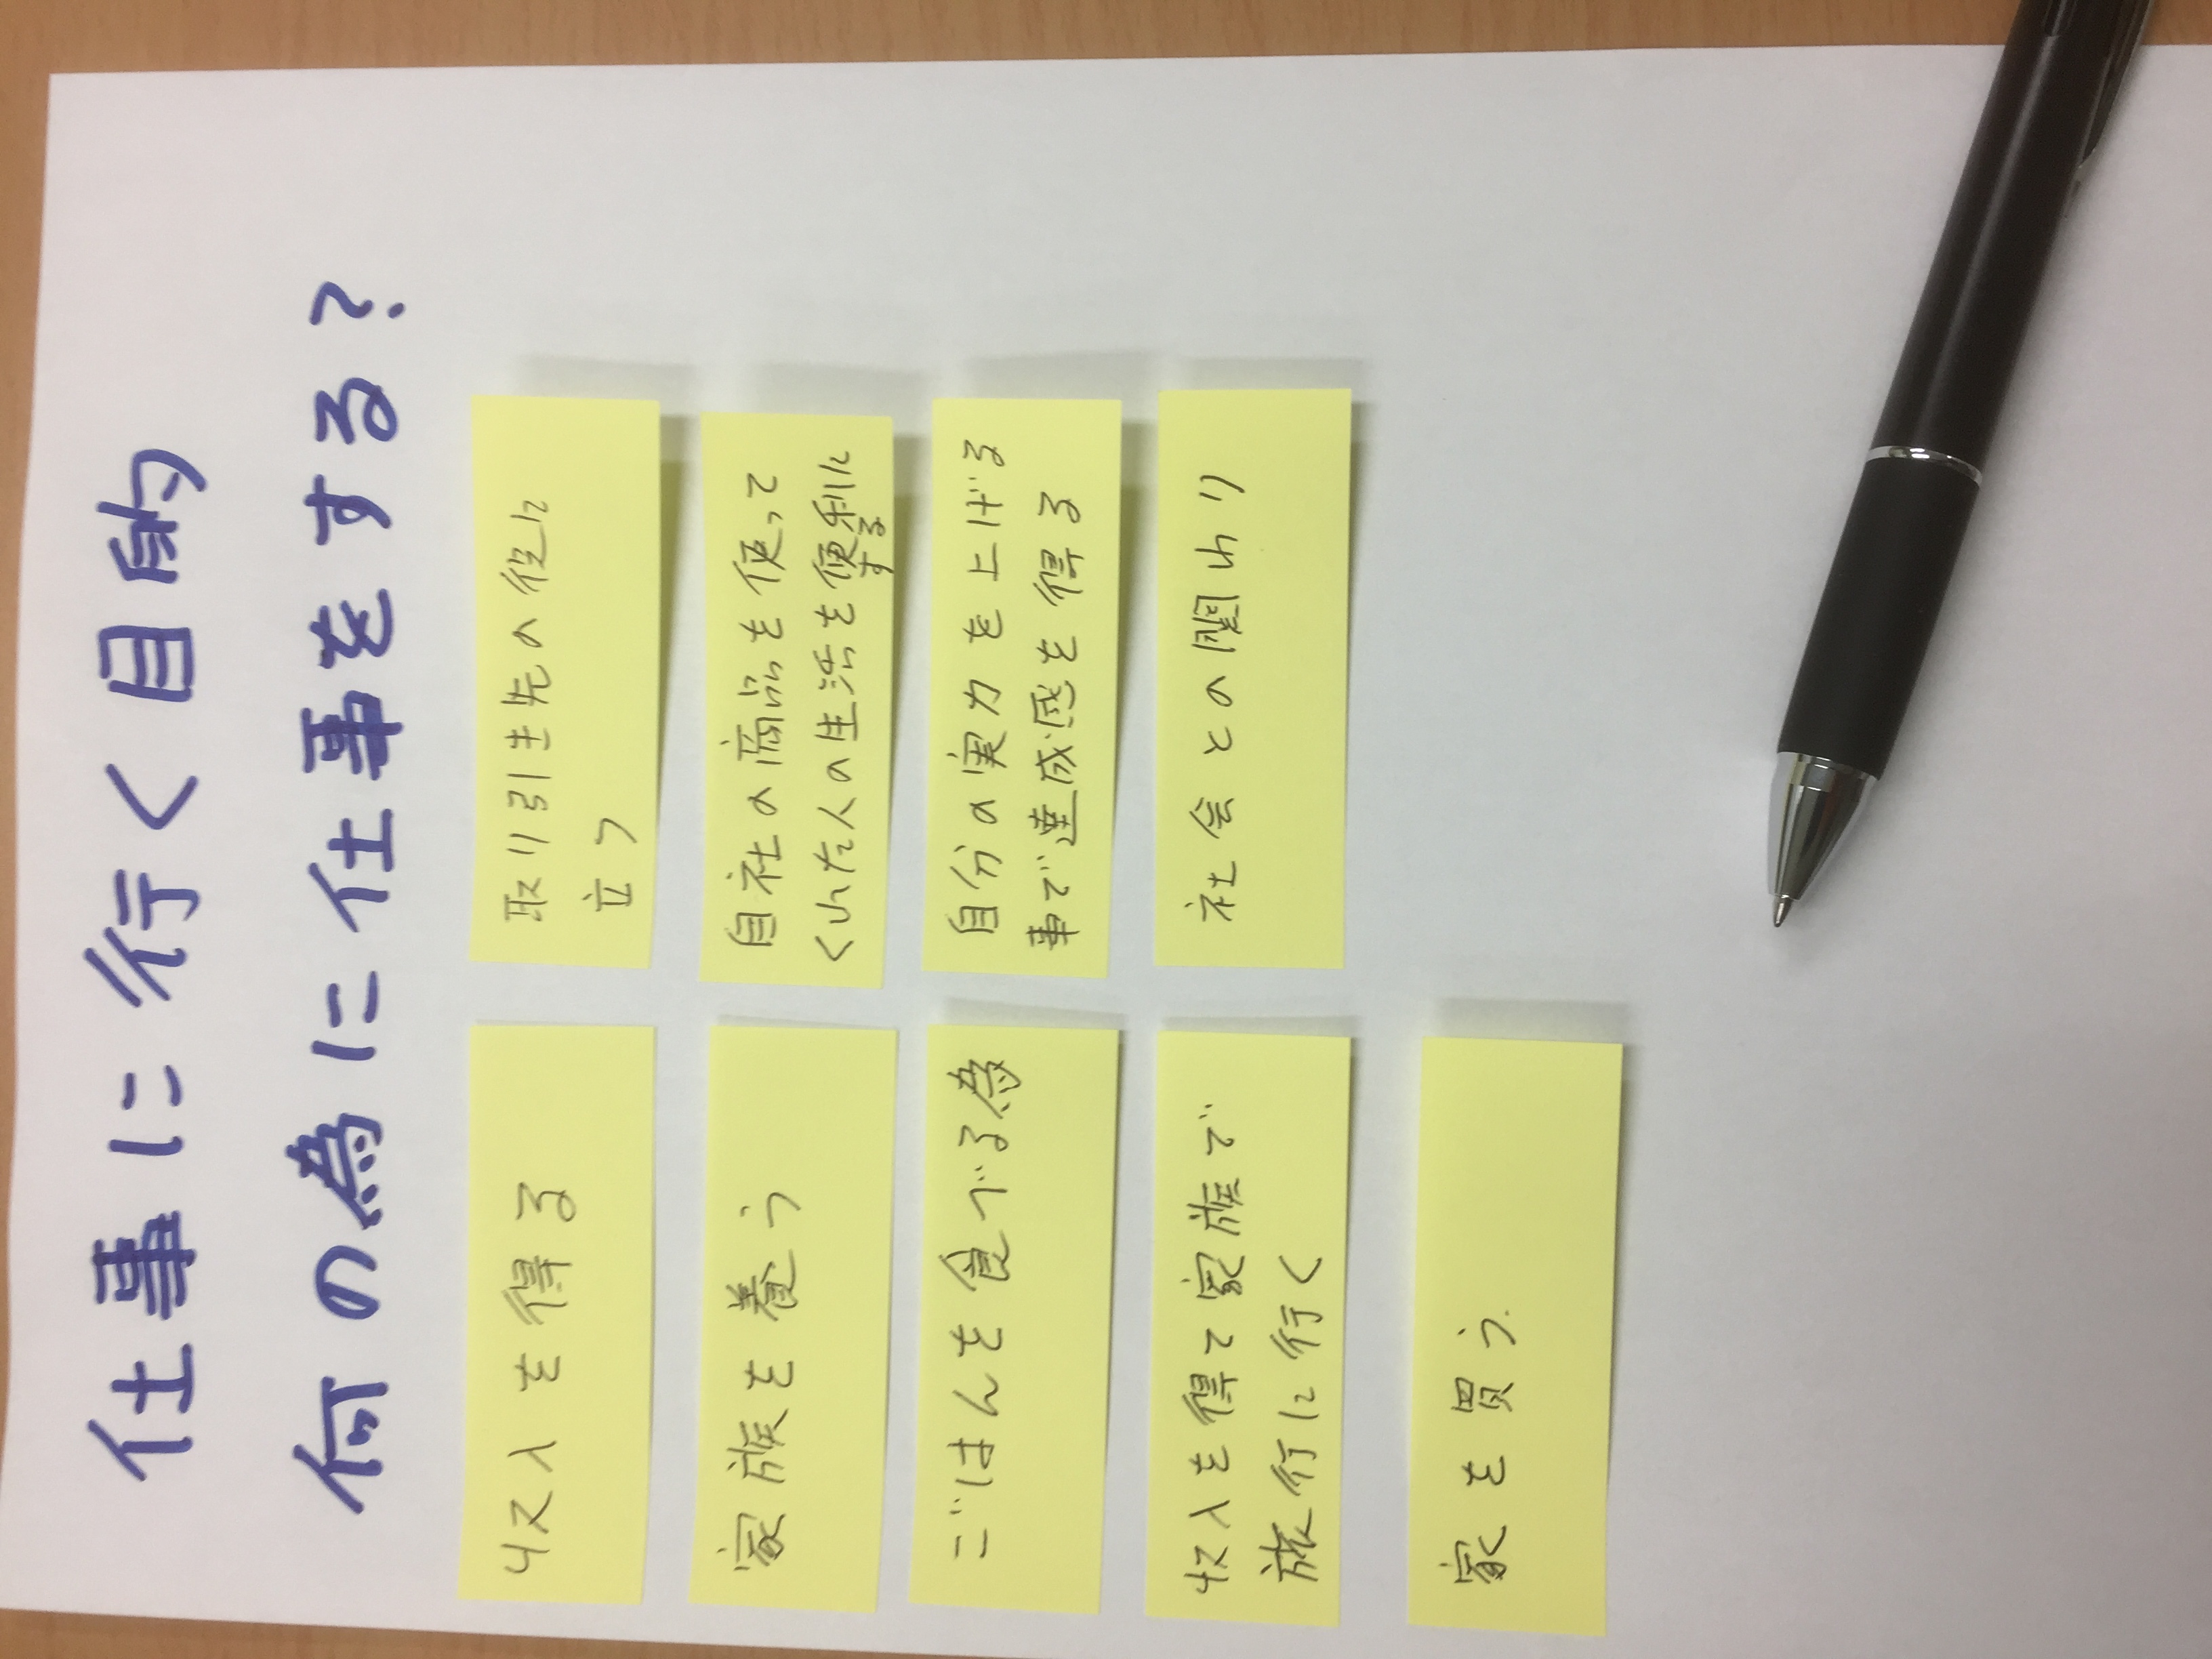 仕事に行く目的
何の為に仕事をする?
収入を得る
家族を養う
ごはんを食べる為
収入を得て家族で
旅行に行く
家を買う.
取り引き先の役に
立つ
自社の商品を使って
くれた人の生活を便利に
する
自分の実力を上げる
事で達成感を得る
社会との関わり